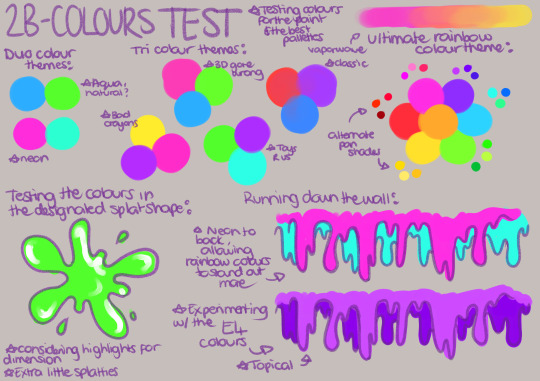 2B-COLOURS TEST
☆Testing colours
for the paint
& the best
pallettes
Ultimate rainbow
colour theme:
Duo colour
themes:
☆Aqua,
natural?
☆neon
Tri colour themes:
☆3D gone
wrong
vaporwave
☆classic
☆Bad
crayons
☆Toys
R us
alternate
pan
shades
Testing the colours in
the designated splat shape:
☆considering highlights for
dimension
☆Extra little splatties
Running down the wall:
☆Neon to
back,
allowing
rainbow colours
to stand out
more
☆Experimating
w/ the E4
colours
☆Topical